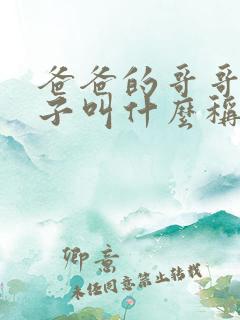 爸爸的哥哥
子叫什麼稱
卿意
未经同意禁止转载